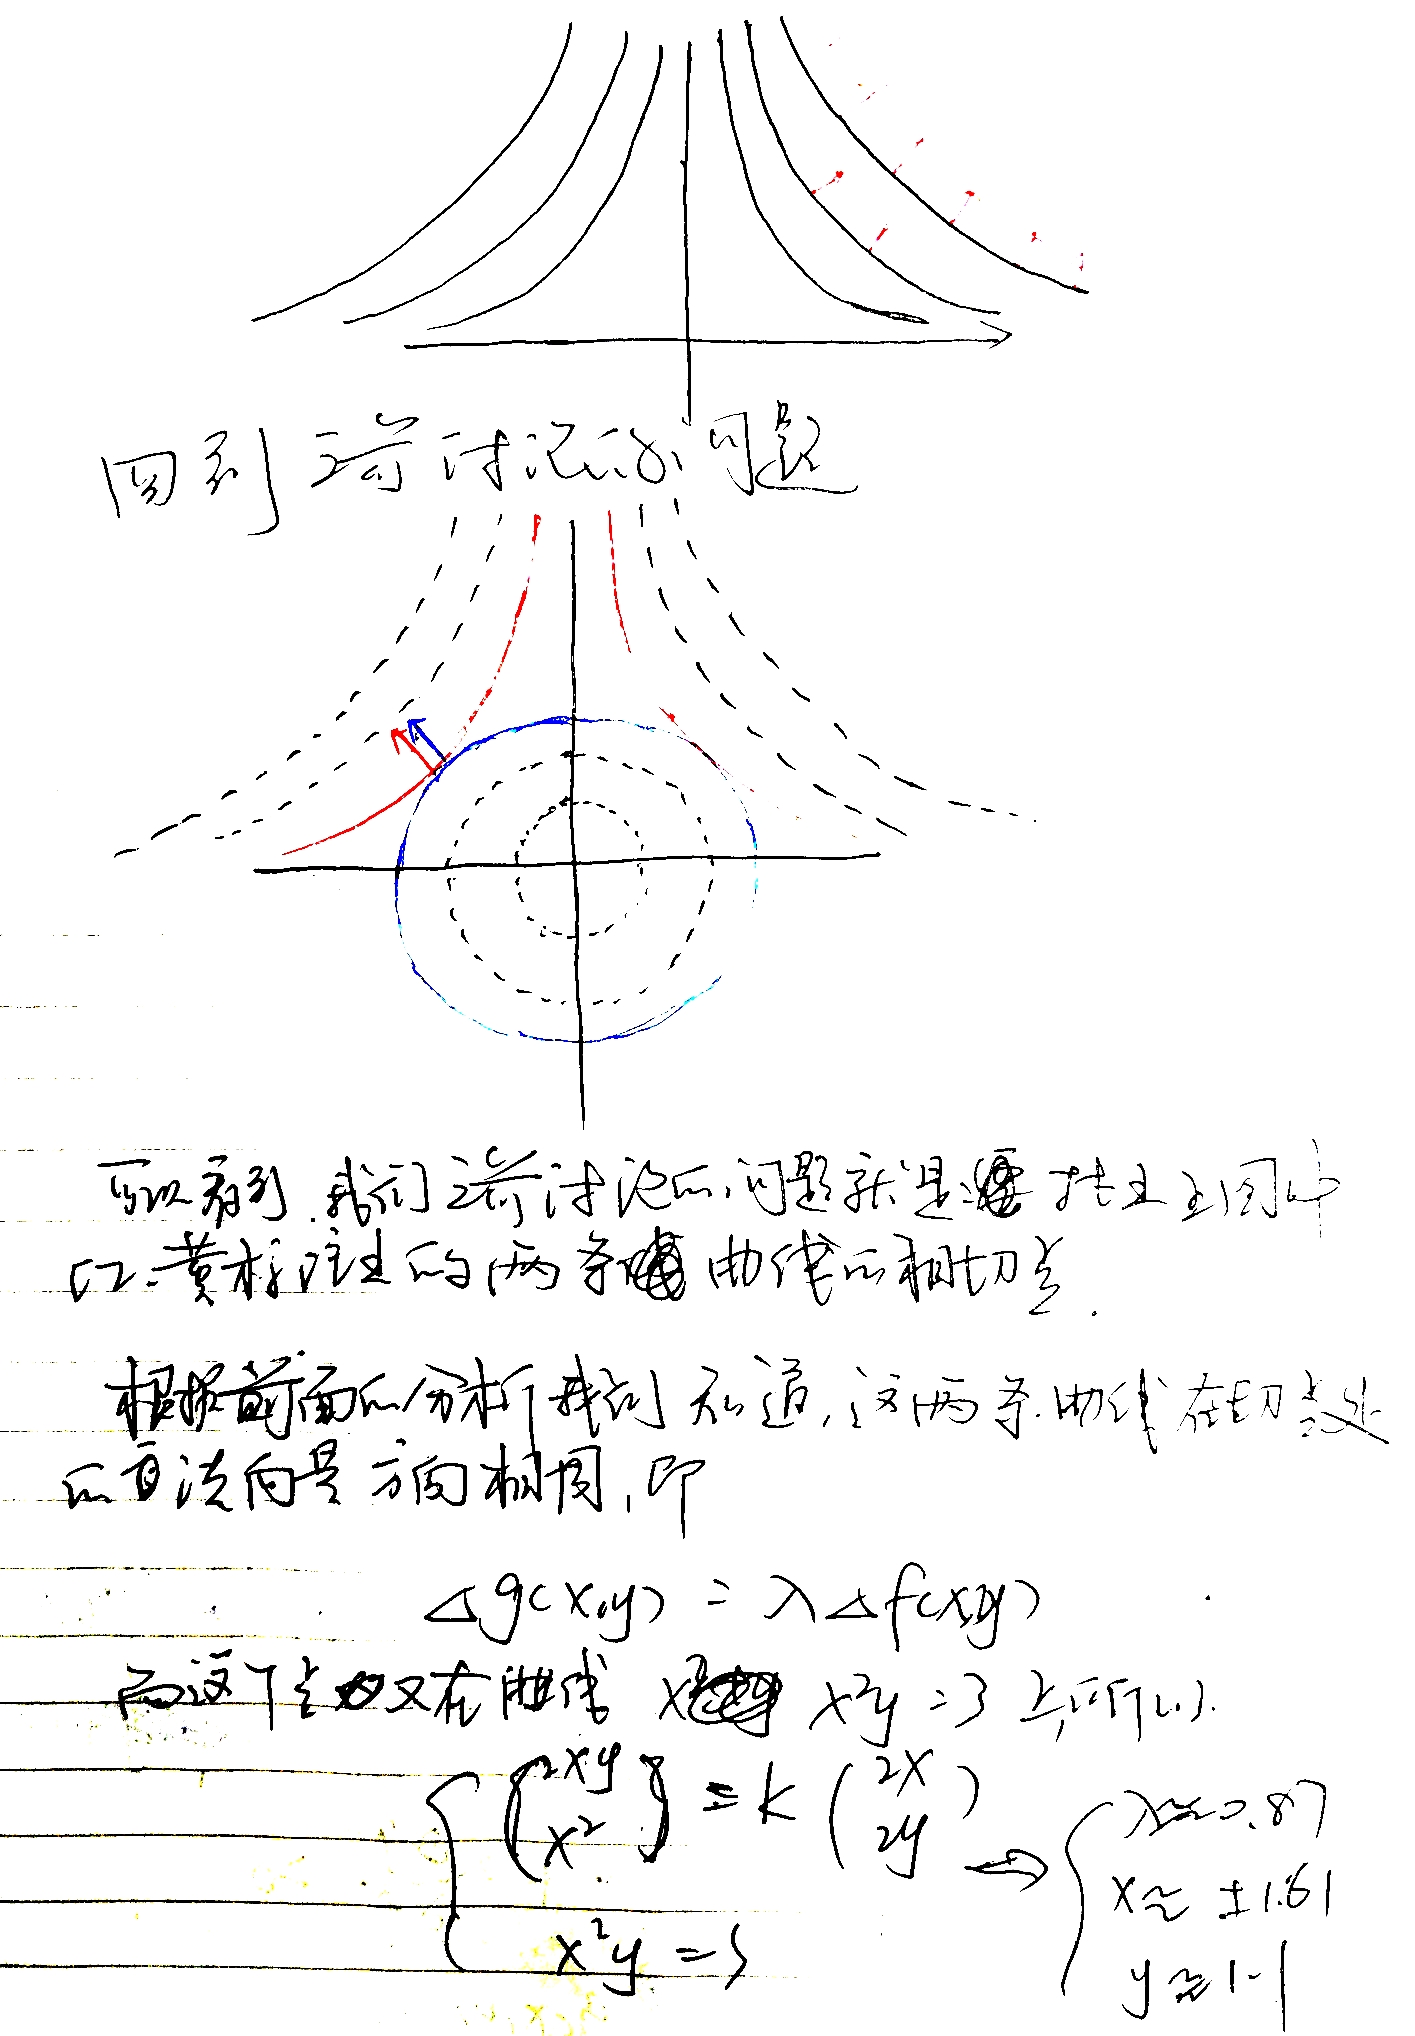 回到之前讨论的问题
可以看到,我们之前讨论的问题就是要找出上图中
红、黄标注出的两条曲线的相切点.
根据前面的分析我们知道,这两条曲线在切点处
的法向是方向相同,即
△g(x,y) = λ△f(x,y)
而这个点又在曲线 x²y=3 上,所以.
{ (2xy x²) = k (2x 2y)
x²y = 3
⇒ { λ≈0.87
x≈ ±1.61
y≈1.1